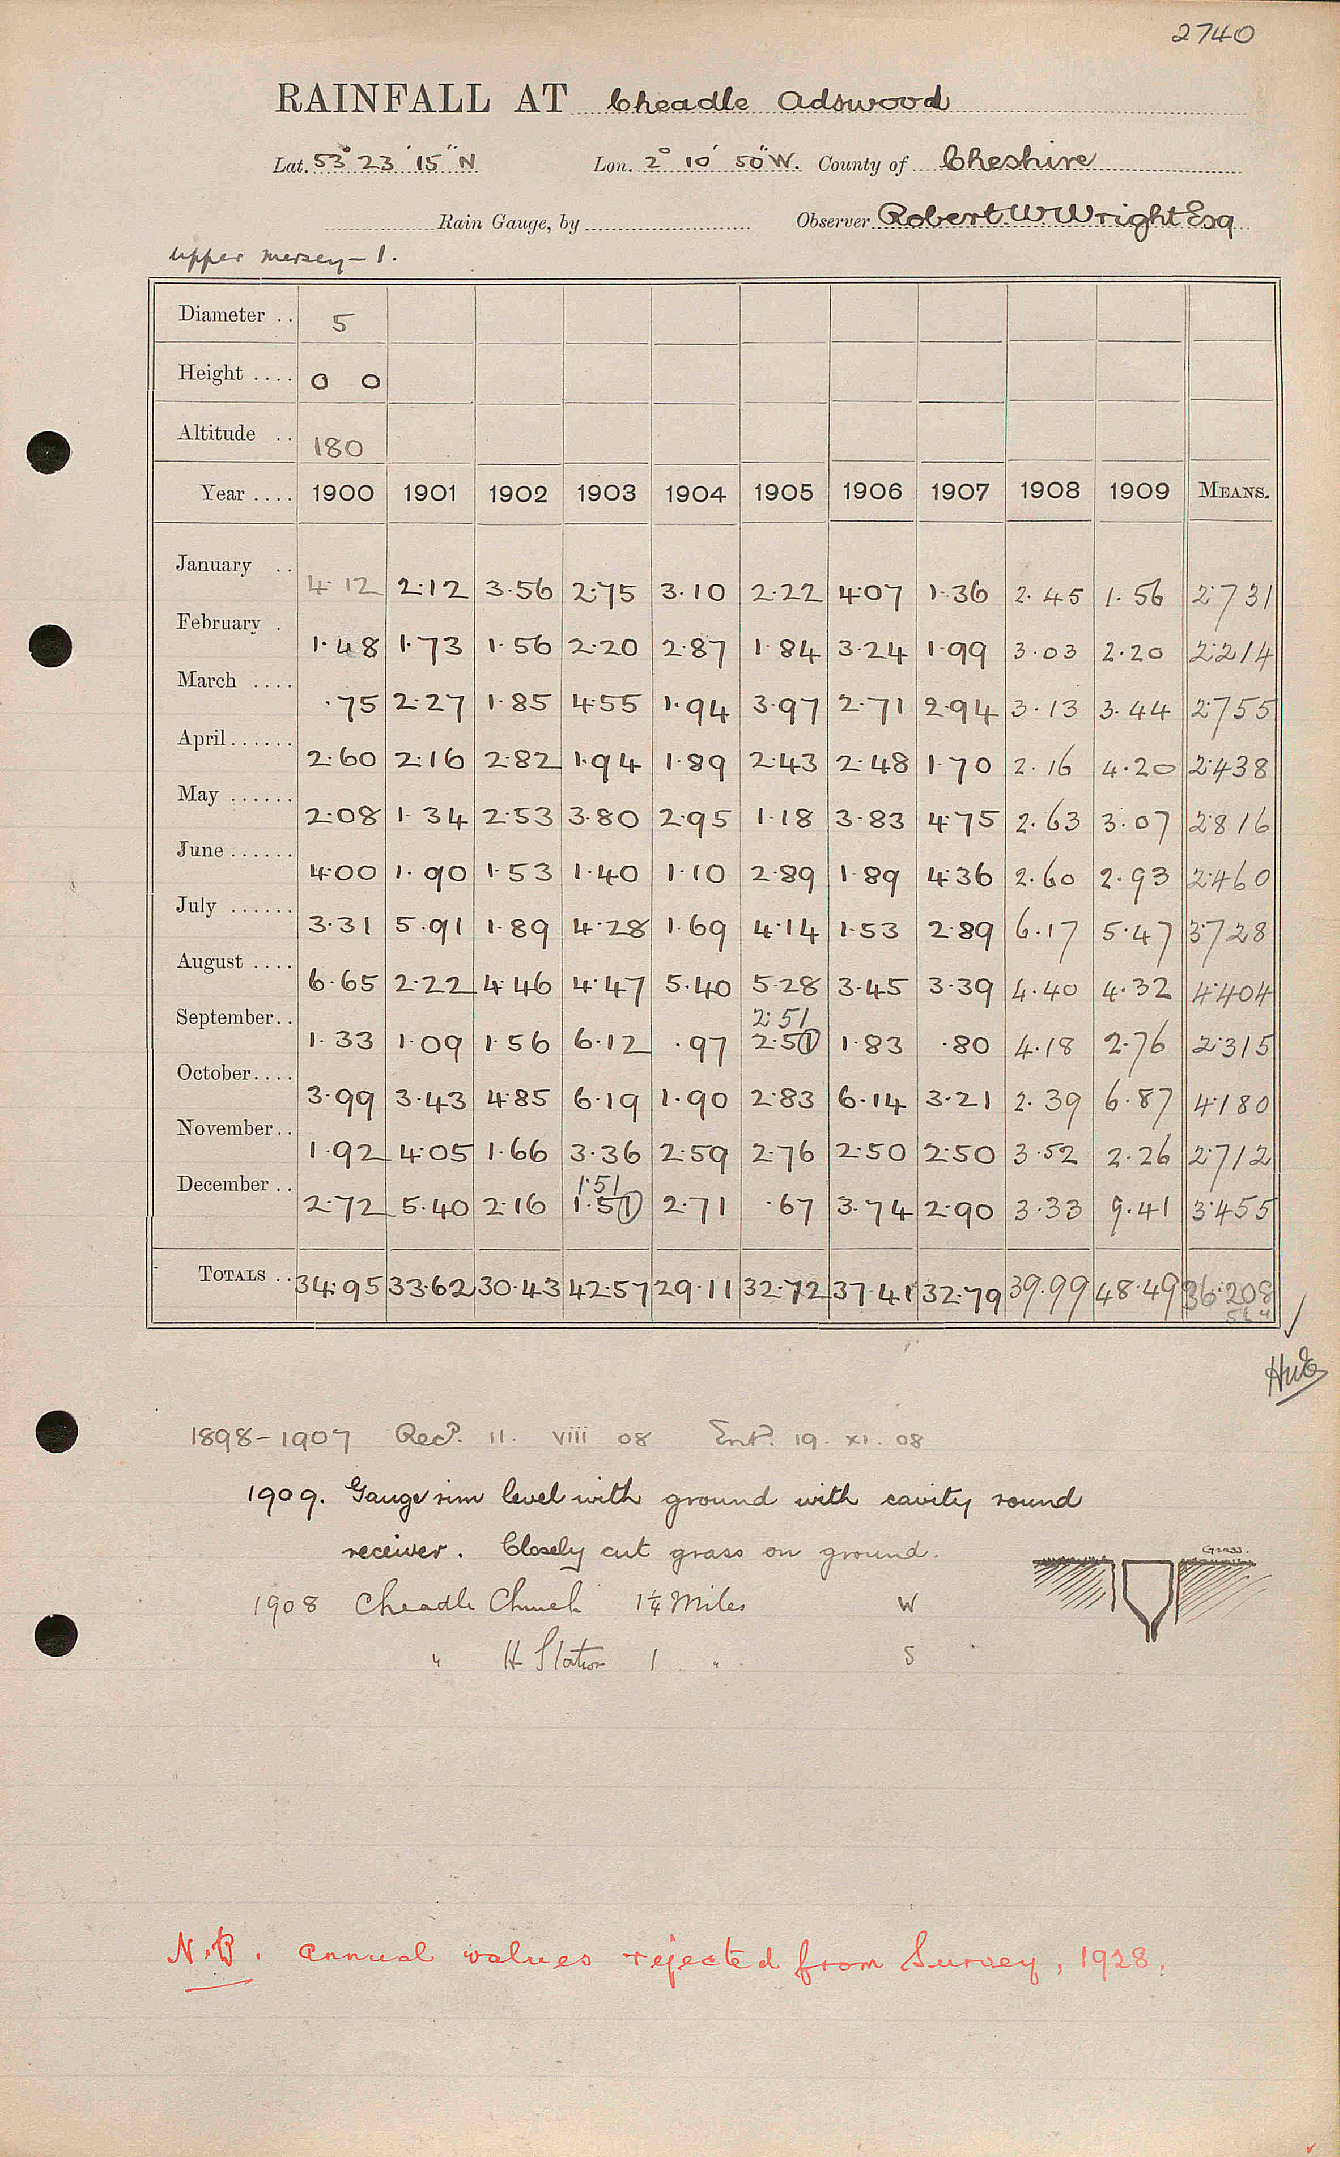 2740
RAINFALL AT Cheadle Adswood
Lat. 53° 23' 15" N Lon. 2° 10' 50" W. County of Cheshire
Rain Gauge, by Observer Robert W Wright Esq
upper mersey - 1.
Diameter .. 5
Height .... 0 0
Altitude .. 180
Year .... 1900 1901 1902 1903 1904 1905 1906 1907 1908 1909 MEANS.
January .. 4.12 2.12 3.56 2.75 3.10 2.22 4.07 1.36 2.45 1.56 2.731
February . 1.48 1.73 1.56 2.20 2.87 1.84 3.24 1.99 3.03 2.20 2.214
March .... .75 2.27 1.85 4.55 1.94 3.97 2.71 2.94 3.13 3.44 2.755
April ...... 2.60 2.16 2.82 1.94 1.89 2.43 2.48 1.70 2.16 4.20 2.438
May ...... 2.08 1.34 2.53 3.80 2.95 1.18 3.83 4.75 2.63 3.07 2.816
June ...... 4.00 1.90 1.53 1.40 1.10 2.89 1.89 4.36 2.60 2.93 2.460
July ...... 3.31 5.91 1.89 4.28 1.69 4.14 1.53 2.89 6.17 5.47 3.728
August .... 6.65 2.22 4.46 4.47 5.40 5.28 3.45 3.39 4.40 4.32 4.404
2.51
September.. 1.33 1.09 1.56 6.12 .97 2.51 1.83 .80 4.18 2.76 2.315
October.... 3.99 3.43 4.85 6.19 1.90 2.83 6.14 3.21 2.39 6.87 4.180
November.. 1.92 4.05 1.66 3.36 2.59 2.76 2.50 2.50 3.52 2.26 2.712
1.51
December .. 2.72 5.40 2.16 1.51 2.71 .67 3.74 2.90 3.33 9.41 3.455
TOTALS .. 34.95 33.62 30.43 42.57 29.11 32.72 37.41 32.79 39.99 48.49 36.208
1898-1907 Recd. 11. viii 08 Entd. 19. xi. 08
1909. Gauge rim level with ground with cavity round
receiver. Closely cut grass on ground.
Grass.
1908 Cheadle Church 1¼ Miles W
" H Station 1 " S
N.B. Annual values rejected from Survey, 1928.